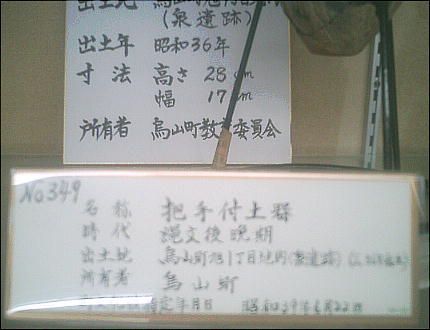 出土地 烏山町
(泉遺跡)
出土年 昭和36年
寸法 高さ 28cm
幅 17cm
所有者 烏山町教育委員会
No349
名称 把手付土器
時代 縄文後晩期
出土地 烏山町旭1丁目地内(泉遺跡)
所有者 烏山町
指定年月日 昭和39年6月22日